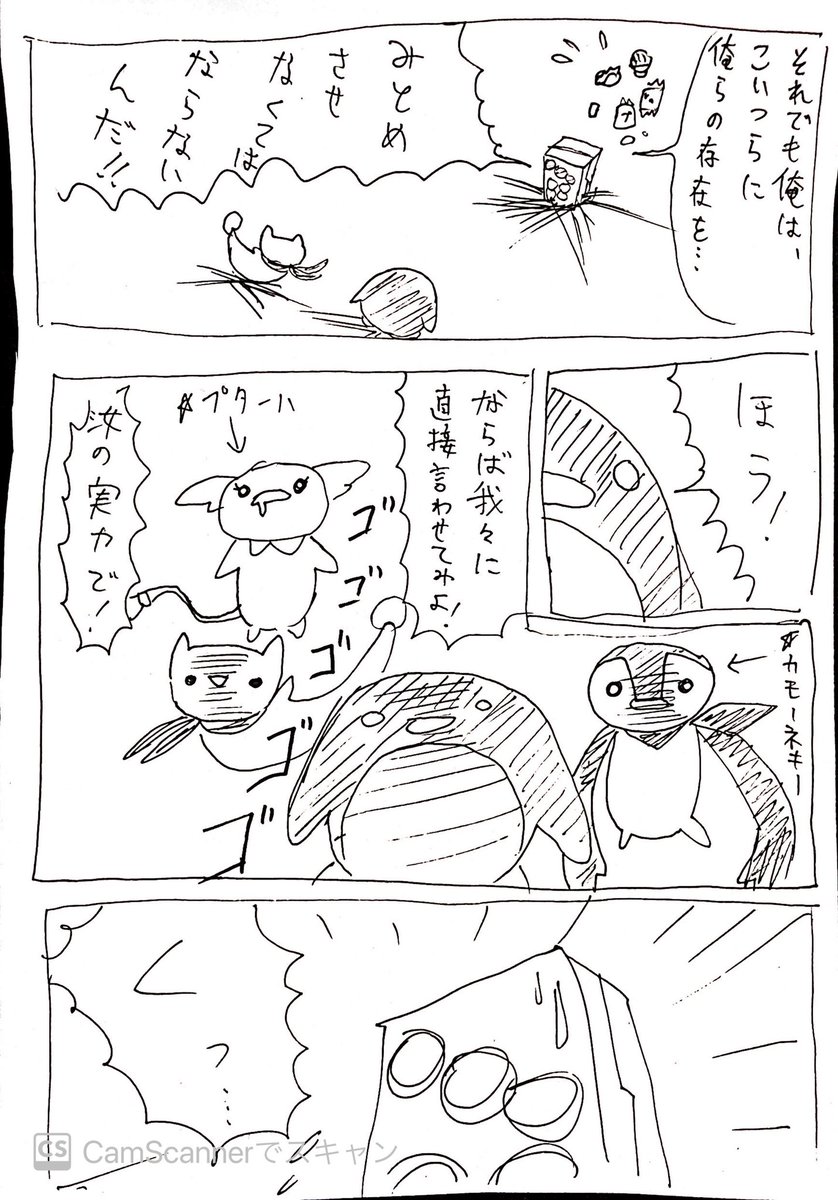 それでも俺は、
こいつらに
俺らの存在を…
みとめ
させ
なくては
ならない
んだ!!
ほう!
ならば我々に
直接言わせてみよ!
プターハ
汝の実力で!
カモーネギー
ゴゴゴゴゴ
くっ…
CS CamScannerでスキャン